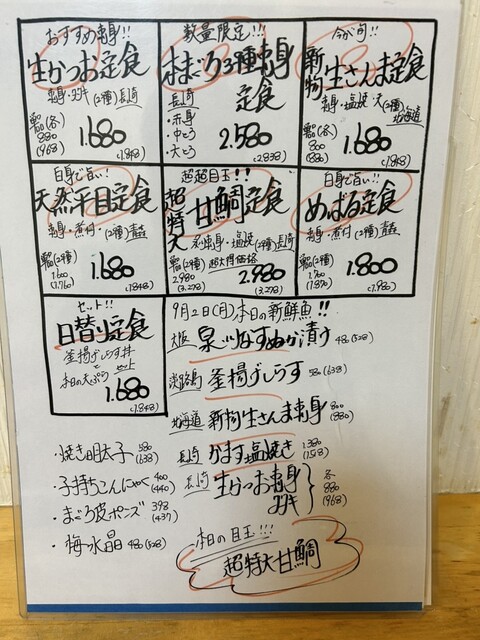 おすすめ刺身!!
生かつお定食
刺身・タタキ(2種)長崎
単品(各)
880
(968)
1.680
(1.848)
数量限定!!!
本まぐろ3種刺身
定食
長崎
・赤身
・中とろ
・大とろ
2.580
(2.838)
今が旬!!
新物生さんま定食
刺身・塩焼・(2種)
北海道
単品(各)
800
(880)
1.680
(1.848)
白身で旨い!!
天然平目定食
刺身・煮付・(2種)青森
単品(2種)
1.600
(1.760)
1.680
(1.848)
超超目玉!!
超特大甘鯛定食
刺身・塩焼(2種)長崎
単品(2種)超お得価格
2.980
(3.278)
2.980
(3.278)
白身で旨い!!
めばる定食
刺身・煮付(2種)青森
単品(2種)
1.700
(1.870)
1.800
(1.980)
セット!!
日替り定食
釜揚げしらす丼
と
本日の天ぷらセット
1.680
(1.848)
9月2日(月)本日の新鮮魚!!
大阪 泉州水なすぬか漬け 480(528)
淡路島 釜揚げしらす 580(638)
北海道 新物生さんま刺身 800(880)
長崎 かます塩焼き 1.380(1.518)
長崎 生かつお刺身
タタキ
各
880
(968)
・焼き明太子 580(638)
・子持ちこんにゃく 400(440)
・まぐろ皮ポンズ 398(437)
・梅水晶 480(528)
本日の目玉!!!
超特大甘鯛